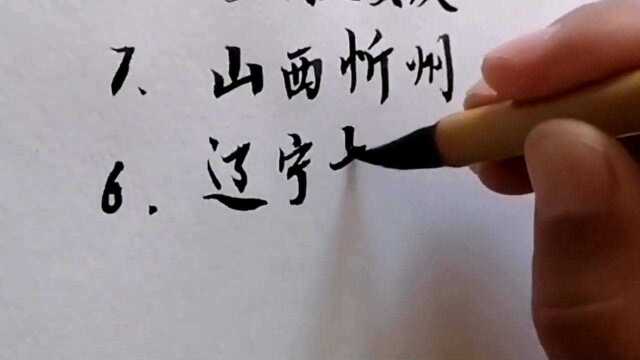 7. 山西忻州
6. 辽宁